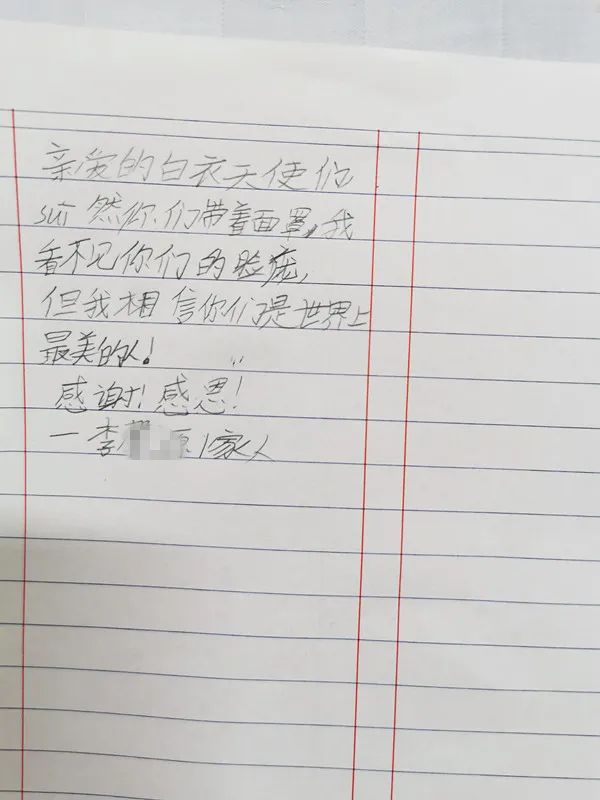 亲爱的白衣天使们
sui然你们带着面罩,我
看不见你们的脸庞,
但我相信你们是世界上
最美的人!
感谢!感恩!
一李 家人